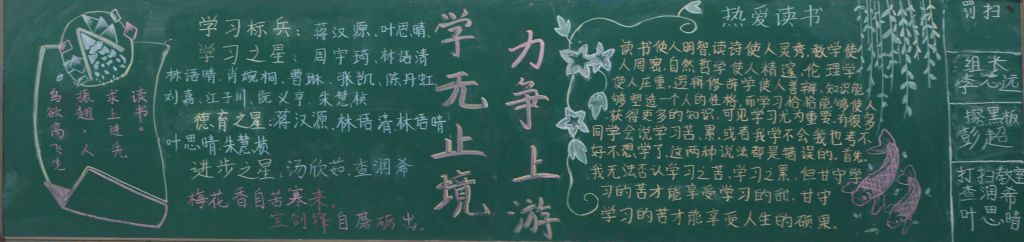 读书。
求上进先
振翅，人
鸟欲高飞先
学习标兵：蒋汉源、叶思晴
学习之星：周宇琦、林语清
林语晴、肖婉桐、曹琳、张凯、陈丹虹
刘嘉、江子川、阮义亨、朱慧桢
德育之星：蒋汉源、林语清、林语晴
叶思晴、朱慧桢
进步之星、汤欣茹、查润希
梅花香自苦寒来，
宝剑锋自磨砺出。
学无止境
力争上游
热爱读书
读书使人明智，读诗使人灵秀，数学使
人周密，自然哲学使人精邃，伦理学
使人庄重，逻辑修辞学使人善辩，知识能
够塑造一个人的性格，而学习恰恰能够使人
获得更多的知识，可见学习尤为重要。有很多
同学会说学习苦、累，或者我学不会，我也考不
好不想学了，这两种说法都是错误的。首先，
我无法否认学习之苦，学习之累，但甘守学
习的苦才能享受学习的甜，甘守
学习的苦才能享受人生的硕果。
扫
组长
李 远
擦黑板
彭超
打扫教室
查润希
叶思晴